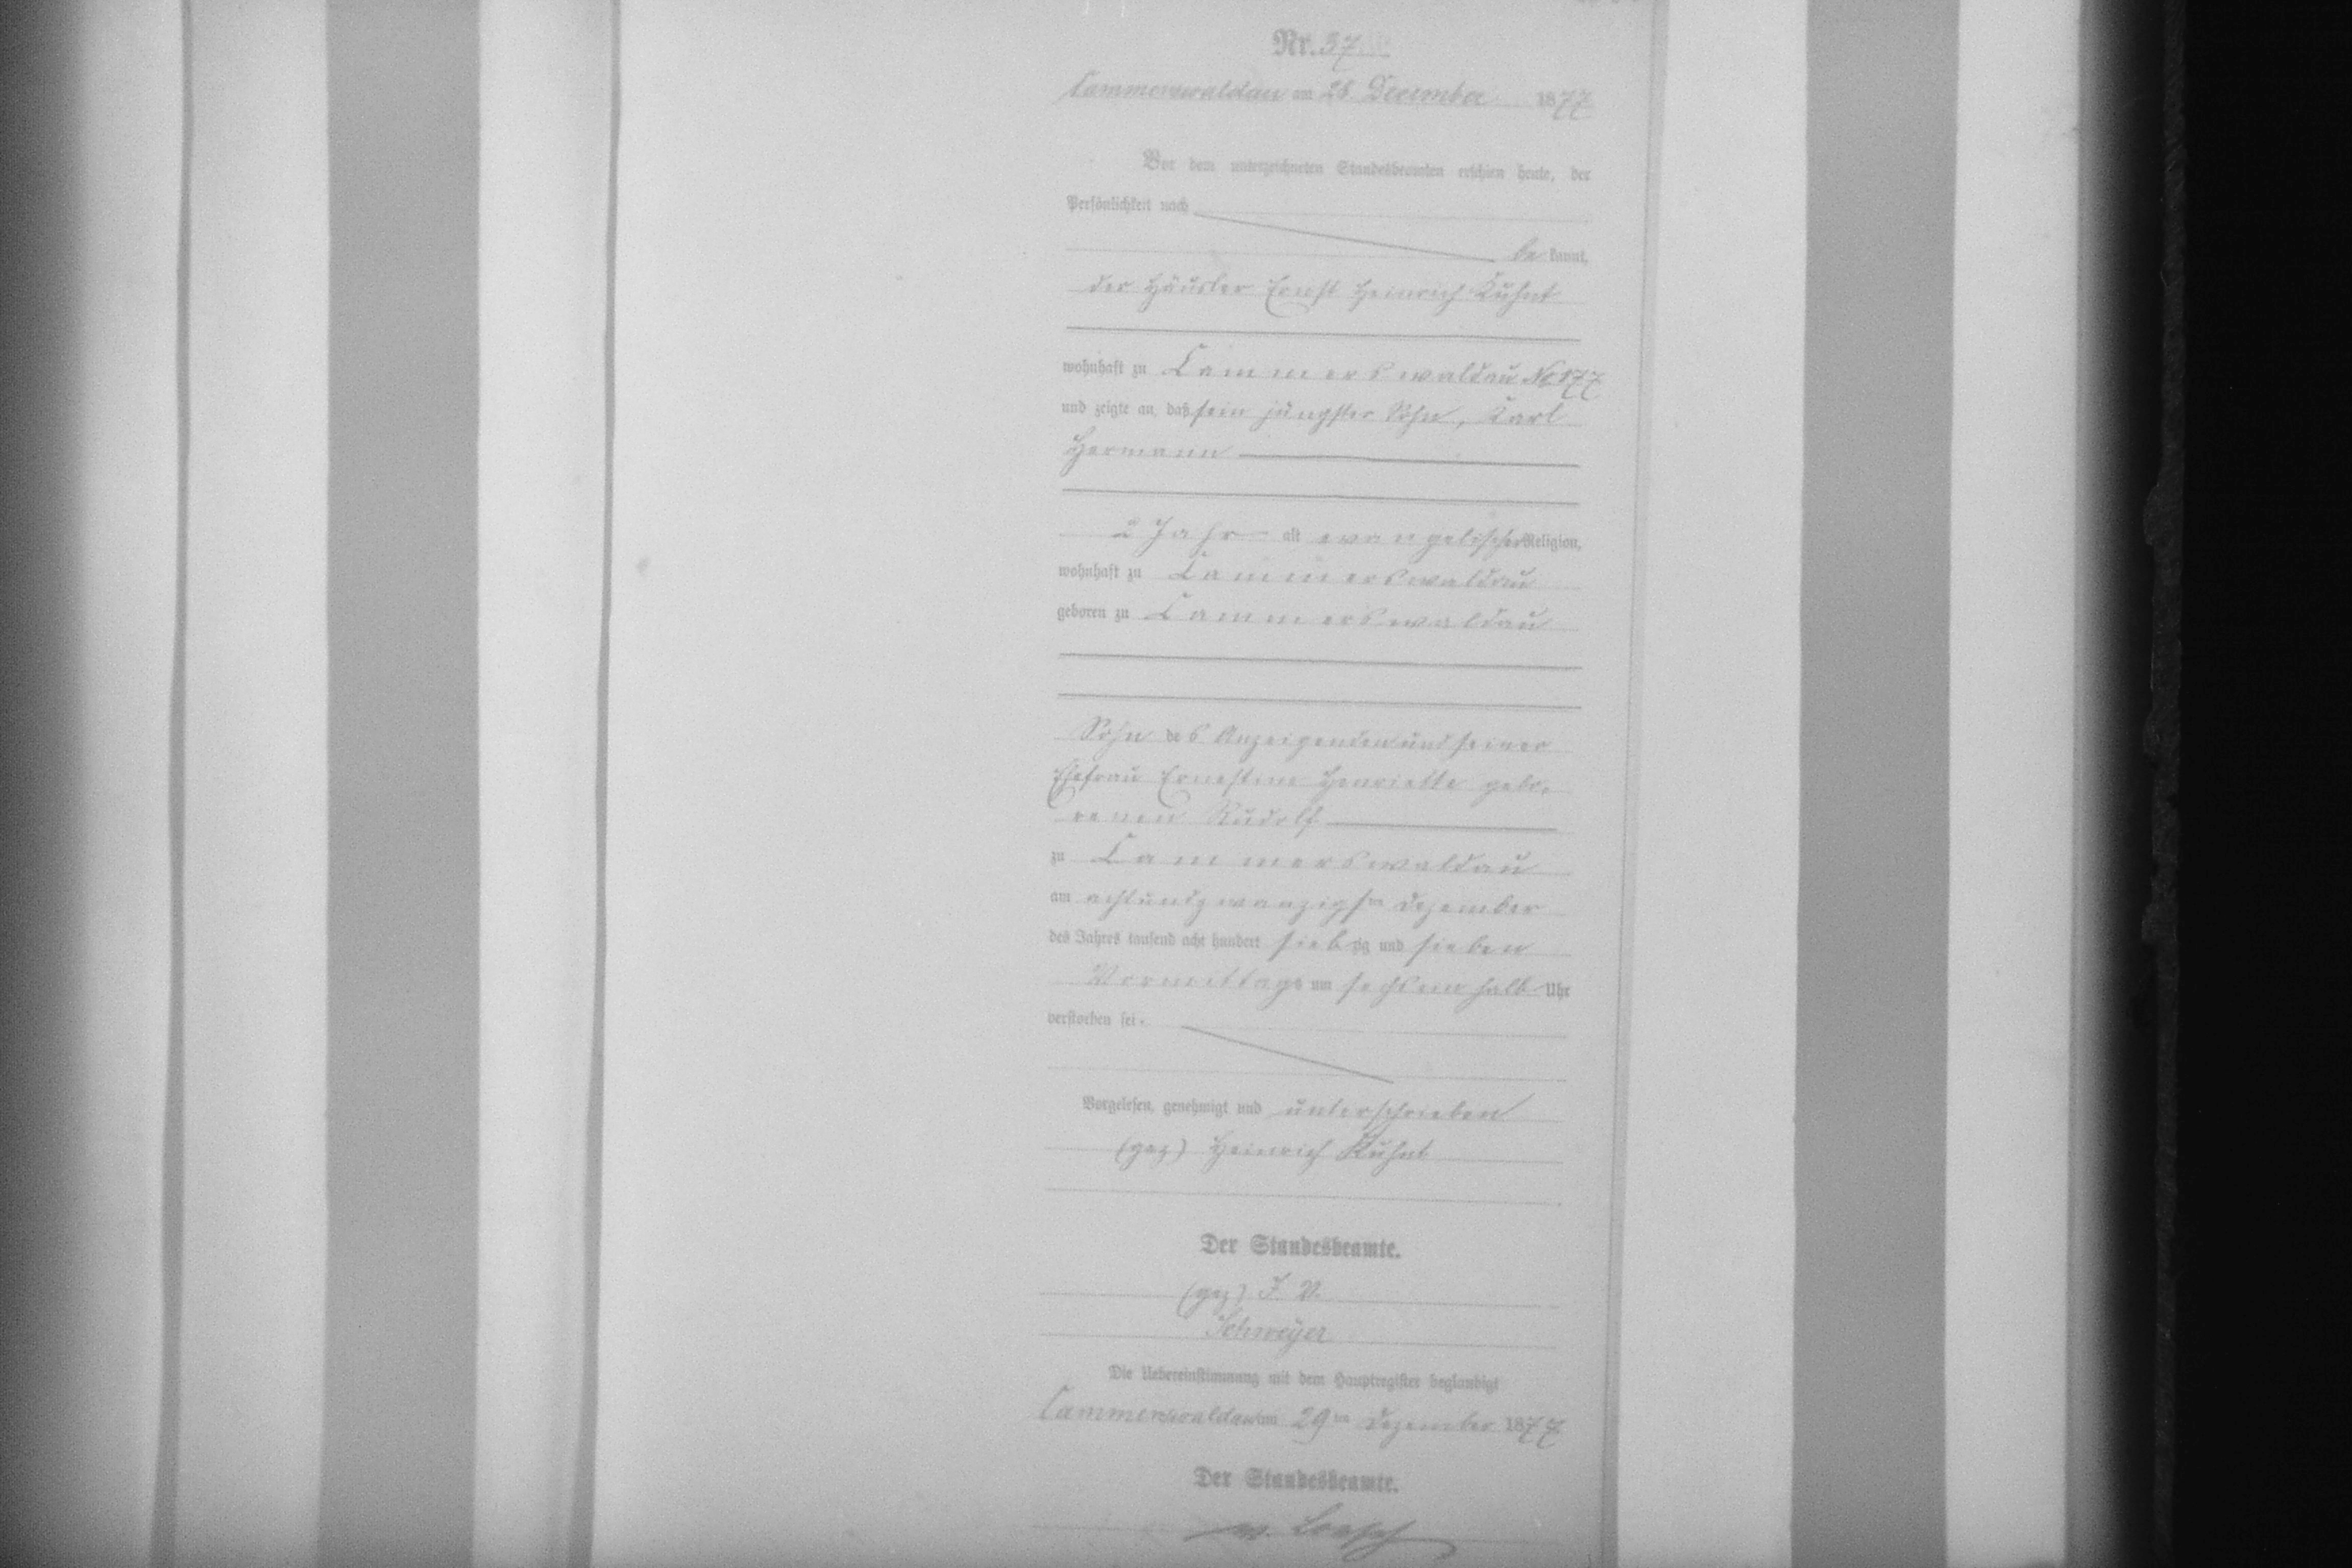 Nr. 37
Cammerswaldau am 28. December 1877
Vor dem unterzeichneten Standesbeamten erschien heute, der
Persönlichkeit nach
be kannt,
der Häusler Ernst Heinrich Kuhnt
wohnhaft zu Cammerswaldau No 177
und zeigte an, daß sein jüngster Sohn, Karl
Hermann
2 Jahr alt evangelischer Religion,
wohnhaft zu Cammerswaldau
geboren zu Cammerswaldau
Sohn des Anzeigenden und seiner
Ehefrau Ernestine Henriette gebo-
renen Rudolf
zu Cammerswaldau
am achtundzwanzigsten Dezember
des Jahres tausend acht hundert siebzig und sieben
Vormittags um sechseinhalb Uhr
verstorben sei.
Vorgelesen, genehmigt und unterschrieben
(gez) Heinrich Kuhnt
Der Standesbeamte.
(gez) I. V.
Schweyer
Die Uebereinstimmung mit dem Hauptregister beglaubigt
Cammerswaldau am 29ten Dezember 1877
Der Standesbeamte.